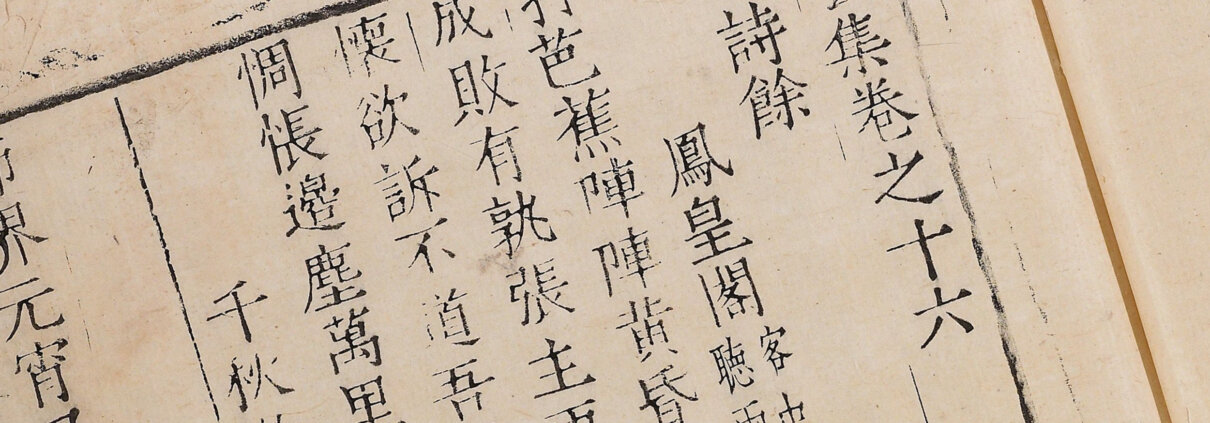 集卷之十六
詩餘
鳳皇閣 客中
聽雨
芭蕉陣陣黃昏
成敗有孰張主
懷欲訴不道吾
惆悵邊塵萬里
千秋
界元宵